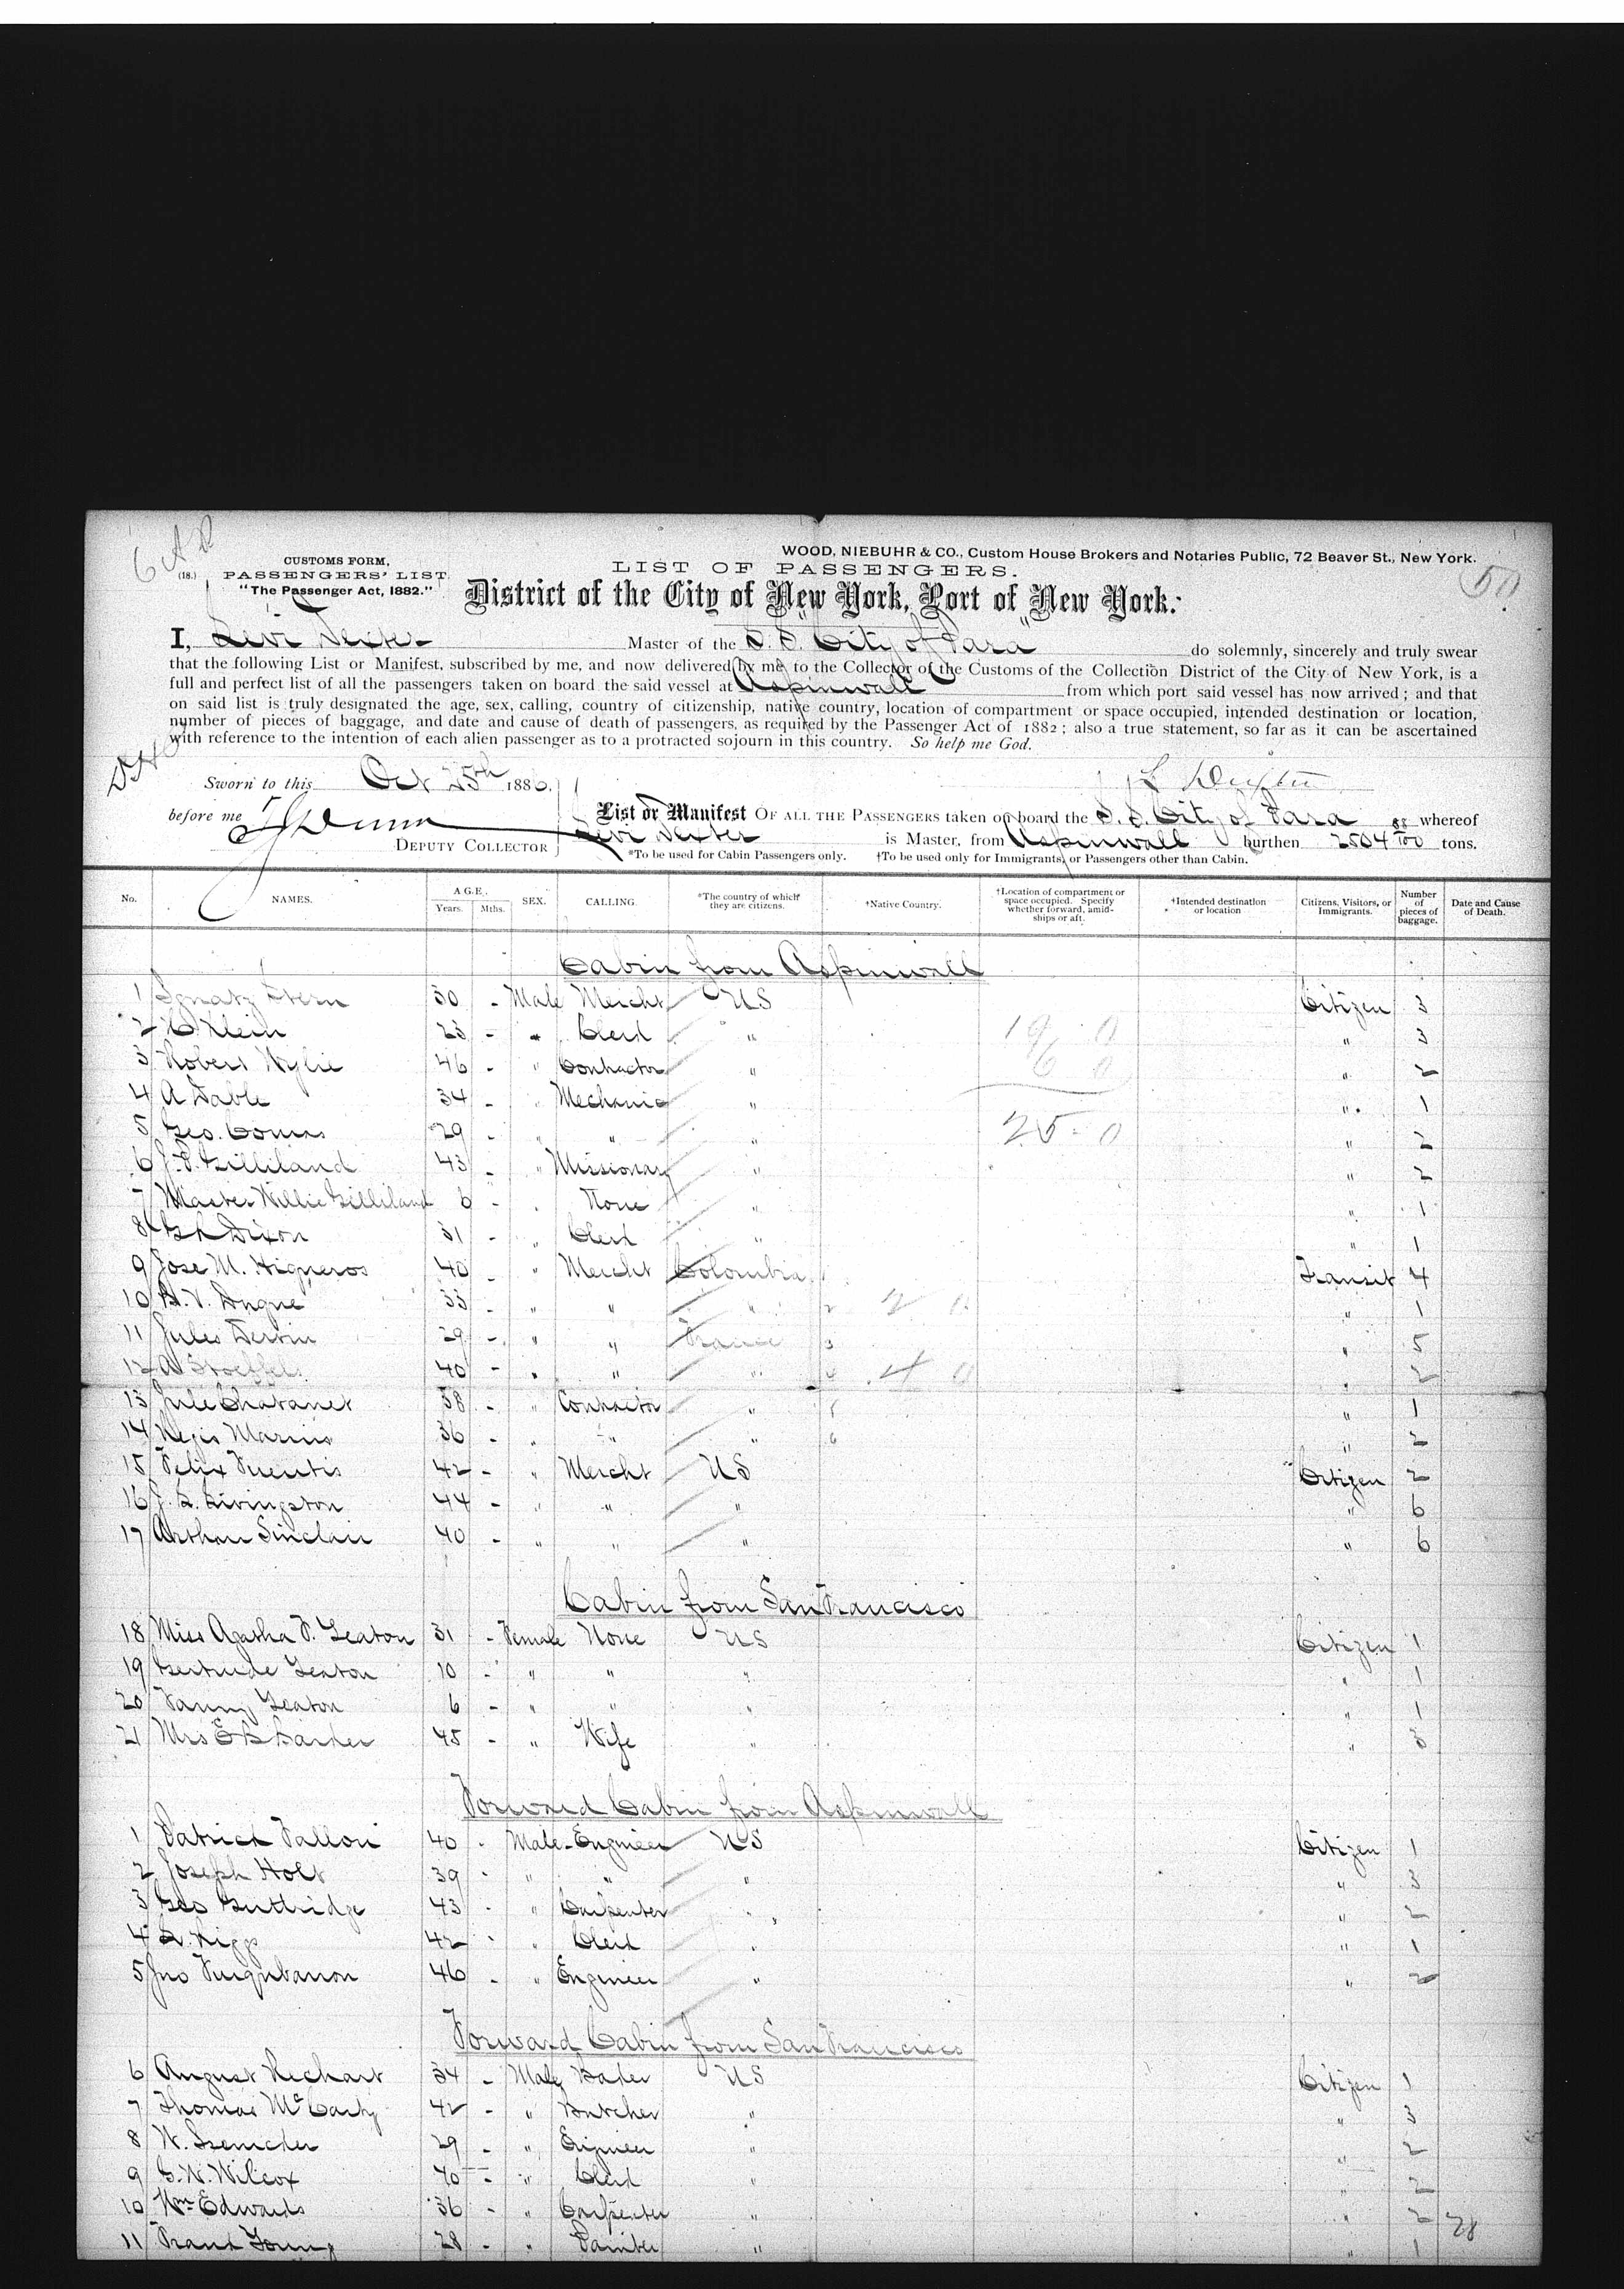 6 A D
WOOD, NIEBUHR & CO., Custom House Brokers and Notaries Public, 72 Beaver St., New York.
CUSTOMS FORM,
(18.) PASSENGERS' LIST.
"The Passenger Act, 1882."
LIST OF PASSENGERS.
50
District of the City of New York, Port of New York:
I, Levi Dexter Master of the S.S. "City of Para" do solemnly, sincerely and truly swear
that the following List or Manifest, subscribed by me, and now delivered by me to the Collector of the Customs of the Collection District of the City of New York, is a
full and perfect list of all the passengers taken on board the said vessel at Aspinwall from which port said vessel has now arrived; and that
on said list is truly designated the age, sex, calling, country of citizenship, native country, location of compartment or space occupied, intended destination or location,
number of pieces of baggage, and date and cause of death of passengers, as required by the Passenger Act of 1882; also a true statement, so far as it can be ascertained
with reference to the intention of each alien passenger as to a protracted sojourn in this country. So help me God.
Sworn to this Oct 25th 1886.
L Dexter
before me
DEPUTY COLLECTOR
List or Manifest OF ALL THE PASSENGERS taken on board the S.S. City of Para whereof
Levi Dexter is Master, from Aspinwall burthen 2504 88/100 tons.
*To be used for Cabin Passengers only. †To be used only for Immigrants, or Passengers other than Cabin.
No. NAMES. AGE. Years. Mths. SEX. CALLING. *The country of which they are citizens. †Native Country. †Location of compartment or space occupied. Specify whether forward, amidships or aft. †Intended destination or location Citizens, Visitors, or Immigrants. Number of pieces of baggage. Date and Cause of Death.
Cabin from Aspinwall
1 Ignatz Stern 30 - Male Mercht US Citizen 3
2 Klein 23 - " Clerk " 19 0 " 3
3 Robert Wylie 46 - " Contractor " 6 0 " 2
4 A Dable 34 - " Mechanic " " 1
5 Geo. 29 - " " " 25 - 0 " 2
6 J.P. Gilliland 43 - " Missionary " " 2
7 Master Willie Gilliland 6 - " None " " 1
8 Dixon 31 - " Clerk " " 1
9 Jose M. Higueros 40 - " Mercht Colombia 1 Transit 4
10 33 - " " " 2 2 0 " 1
11 Jules 29 - " " France 3 " 5
12 A 40 - " " " 4 0 " 2
13 Jule Chatanet 38 - " Contractor " " 1
14 Regis Marins 36 - " " " 6 " 2
15 Felix Fuentis 42 - " Mercht US Citizen 2
16 Livingston 44 - " " " " 6
17 Arthur Sinclair 40 - " " " " 6
Cabin from San Francisco
18 Miss Agatha F. Leaton 31 - Female None US Citizen 1
19 Gertrude Leaton 10 - " " " " 1
20 Fanny Leaton 6 - " " " " 1
21 Mrs E B Barker 45 - " Wife " " 3
Forward Cabin from Aspinwall
1 Patrick Fallon 40 - Male Engineer US Citizen 1
2 Joseph Holt 39 - " " " " 3
3 Geo Guttridge 43 - " Carpenter " " 2
4 42 - " Clerk " " 1
5 Jno 46 - " Engineer " " 2
Forward Cabin from San Francisco
6 August Rechart 34 - Male Baker US Citizen 1
7 Thomas McCarty 42 - " Butcher " " 3
8 W. 29 - " Engineer " " 2
9 G.W. Wilcox 40 - " Clerk " " 2
10 Wm Edwards 36 - " Carpenter " " 2
11 Frank Young 28 - " Painter " " 1
28